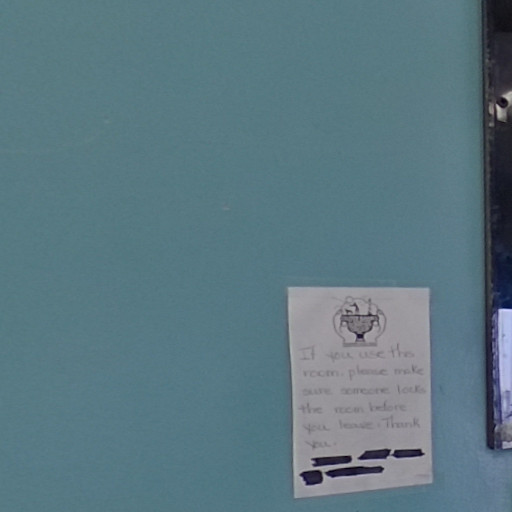 If you use this
room, please make
sure someone locks
the room before
you leave. Thank
you.